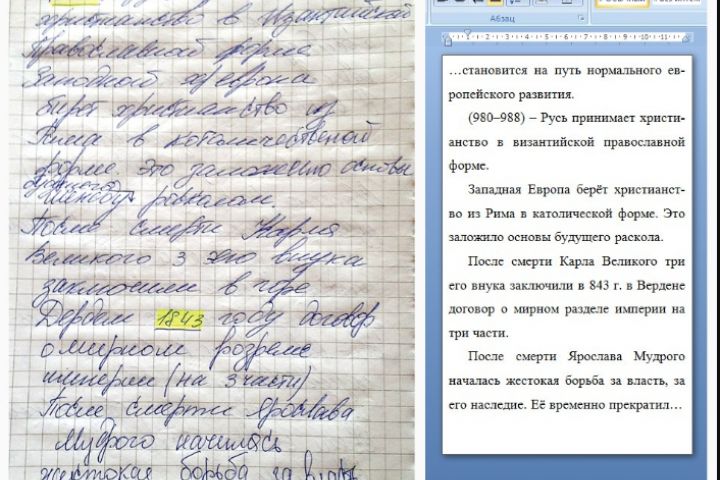 христианство в Византийской
Православной форме
Западной Европа
берёт христианство из
Рима в католичественой
форме. Это заложено основы
будущего расколом.
После смерти Карла
Великого 3 его внука
заключили в горе
Дердем 1843 году договор
о мирном разделе
империи (на 3 части)
После смерти Ярослава
Мудрого началась
жестокая борьба за власть
Абзац
…становится на путь нормального ев-
ропейского развития.
(980–988) – Русь принимает христи-
анство в византийской православной
форме.
Западная Европа берёт христианст-
во из Рима в католической форме. Это
заложило основы будущего раскола.
После смерти Карла Великого три
его внука заключили в 843 г. в Вердене
договор о мирном разделе империи на
три части.
После смерти Ярослава Мудрого
началась жестокая борьба за власть, за
его наследие. Её временно прекратил…